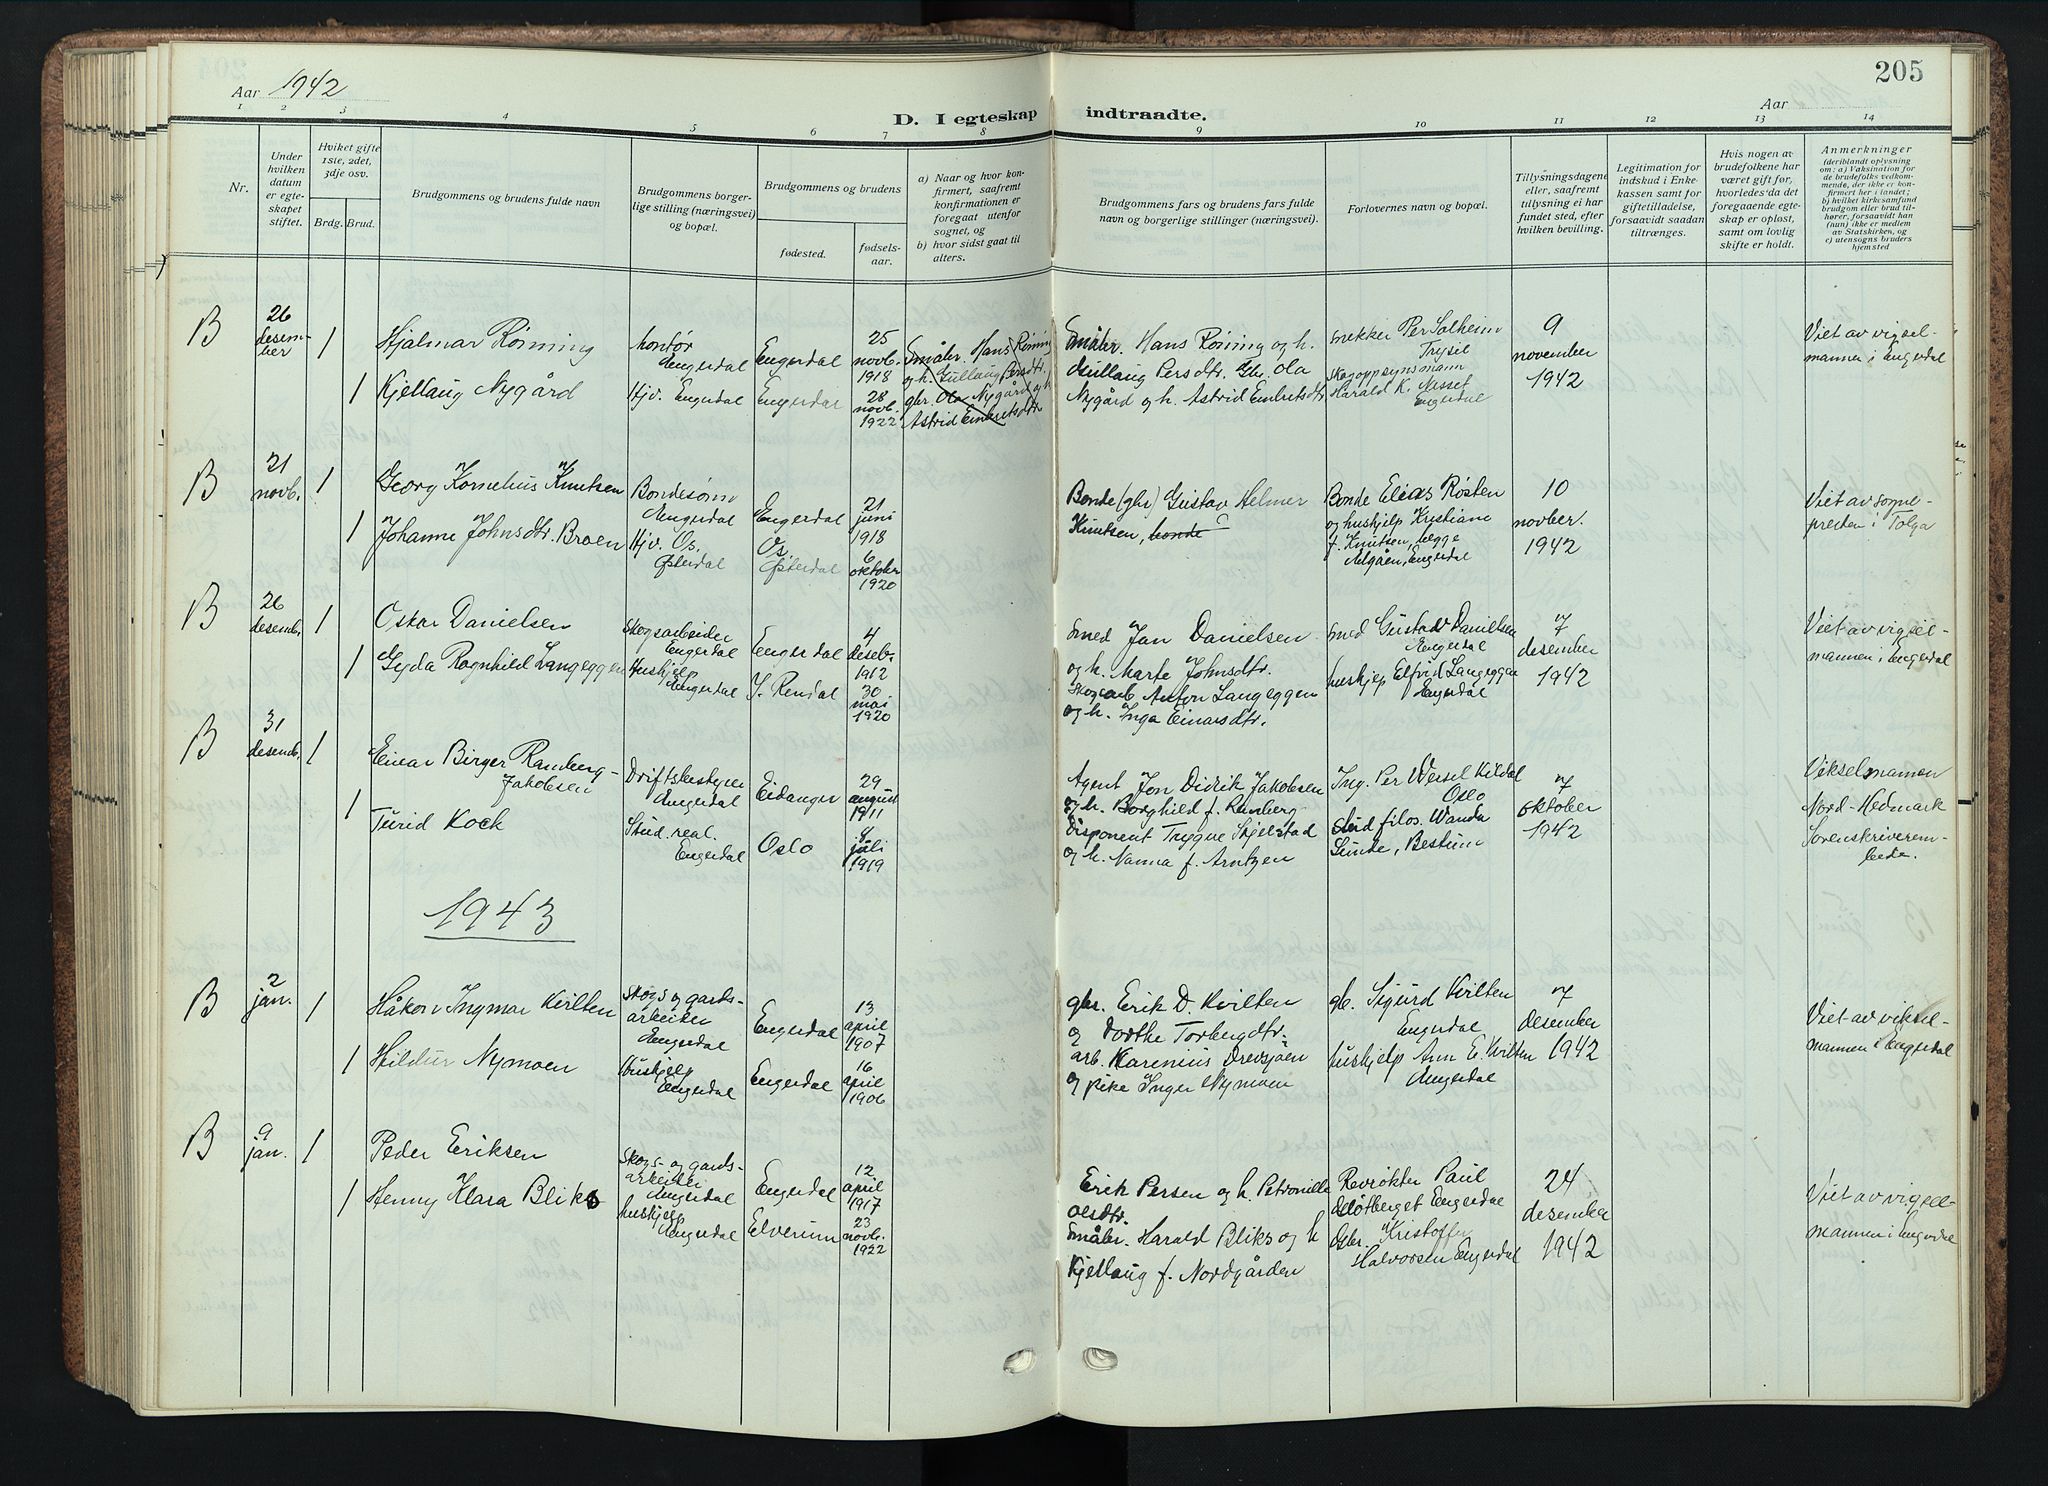 205
Aar 1942
Aar
D. I egteskap indtraadte.
1 2 3 4 5 6 7 8 9 10 11 12 13 14
Nr.
Under
hvilken
datum
er egte-
skapet
stiftet.
Hviket gifte
1ste, 2det,
3dje osv.
Brdg. Brud.
Brudgommens og brudens fulde navn
Brudgommens borger-
lige stilling (næringsvei)
og bopæl.
Brudgommens og brudens
fødested.
fødsels-
aar.
a) Naar og hvor kon-
firmert, saafremt
konfirmationen er
foregaat utenfor
sognet, og
b) hvor sidst gaat til
alters.
Brudgommens fars og brudens fars fulde
navn og borgerlige stillinger (næringsvei).
Forlovernes navn og bopæl.
Tillysningsdagene
eller, saafremt
tillysning ei har
fundet sted, efter
hvilken bevilling.
Legitimation for
indskud i Enke-
kassen samt for
giftetilladelse,
forsaavidt saadan
tiltrænges.
Hvis nogen av
brudefolkene har
været gift før,
hvorledes da det
foregaaende egte-
skap er opløst,
samt om lovlig
skifte er holdt.
Anmerkninger
(deriblandt oplysning
om: a) Vaksination for
de brudefolks vedkom-
mende, der ikke er kon-
firmert her i landet;
b) hvilket kirkesamfund
brudgom eller brud til-
hører, forsaavidt han
(hun) ikke er medlem
av Statskirken, og
c) utensogns bruders
hjemsted
B
26
desem-
ber
1
Hjalmar Røining
kontor
Engerdal
Engerdal
25
novb.
1918
Småbr. Hans Røining
og h. Gullaug Persdtr.
gbr. Ola Nygård og h.
Astrid Embretsdtr.
Småbr. Hans Røining og h.
Gullaug Persdtr. Gbr. Ola
Nygård og h. Astrid Embretsdtr.
snekker Per Solheim
Trysil
Skogoppsynsmann
Harald K. Nasset
Engerdal
9
november
1942
Viet av vigsel-
mannen i Engerdal
1
Kjellaug Nygård
Hjv. Engerdal
Engerdal
28
novb.
1922
B
21
novb.
1
Georg Kornelius Knutsen
Bondesønn
Engerdal
Engerdal
21
juni
1918
Bonde (gbr) Gustav Helmer
Knutsen, bonde
Bonde Elias Røsten
og hushjelp Kristiane
f. Knutsen, begge
Elgåen, Engerdal
10
novber.
1942
Viet av sogne-
presten i Tolga
1
Johanne Johnsdtr. Broen
Hjv. Os.
Østerdal
Os.
Østerdal
6
oktober
1920
B
26
desemb.
1
Oskar Danielsen
Skogsarbeider
Engerdal
Engerdal
4
deseb.
1912
smed Jan Danielsen
og h. Marte Johnsdtr.
Skogsarb. Anton Langeggen
og h. Inga Einarsdtr.
smed Gustav Danielsen
Engerdal
hushjelp Elfrid Langeggen
Engerdal
7
desember
1942
Viet av vigsel-
mannen i Engerdal
1
Gyda Ragnhild Langeggen
Hushjelp
Engerdal
Y. Rendal
30
mai
1920
B
31
desemb.
1
Einar Birger Ramberg-
Jakobsen
Driftsbestyrer
Engerdal
Eidanger
29
august
1911
Agent Jon Didrik Jakobsen
og h. Borghild f. Ramberg
Disponent Trygve Skjelstad
og h. Nanna f. Arntzen
Ing. Per Wessel Kildal
Oslo
stud filos. Wanda
Lunde, Bestum
7
oktober
1942
Vikselsmannen
Nord-Hedmark
Sorenskriverem-
bede.
1
Turid Kock
Stud. real.
Engerdal
Oslo
4
juli
1919
1943
B
2
jan.
1
Håkon Ingmar Kvilten
Skogs og gards-
arbeider
Engerdal
Engerdal
13
april
1907
gbr. Erik D. Kvilten
og Dorthe Torbergdtr.
arb. Karenius Drevsjøen
og pike Inger Nymoen
gb. Sigurd Kvilten
Engerdal
hushjelp Ann E. Kvilten
Engerdal
7
desember
1942
Viet av viksel-
mannen i Engerdal
1
Hildur Nymoen
Hushjelp
Engerdal
Engerdal
16
april
1906
B
9
jan.
1
Peder Eriksen
Skogs- og gards-
arbeider
Engerdal
Engerdal
12
april
1917
Erik Persen og h. Petronille
Olsdtr.
Småbr. Harald Bliks og h
Kjellaug f. Nordgården
Revrøkter Paul
Gløtberget Engerdal
Gbr. Kristoffer
Halvorsen Engerdal
24
desember
1942
Viet av vigsel-
mannen i Engerdal
1
Henny Klara Bliks
hushjelp
Engerdal
Elverum
23
novb.
1922